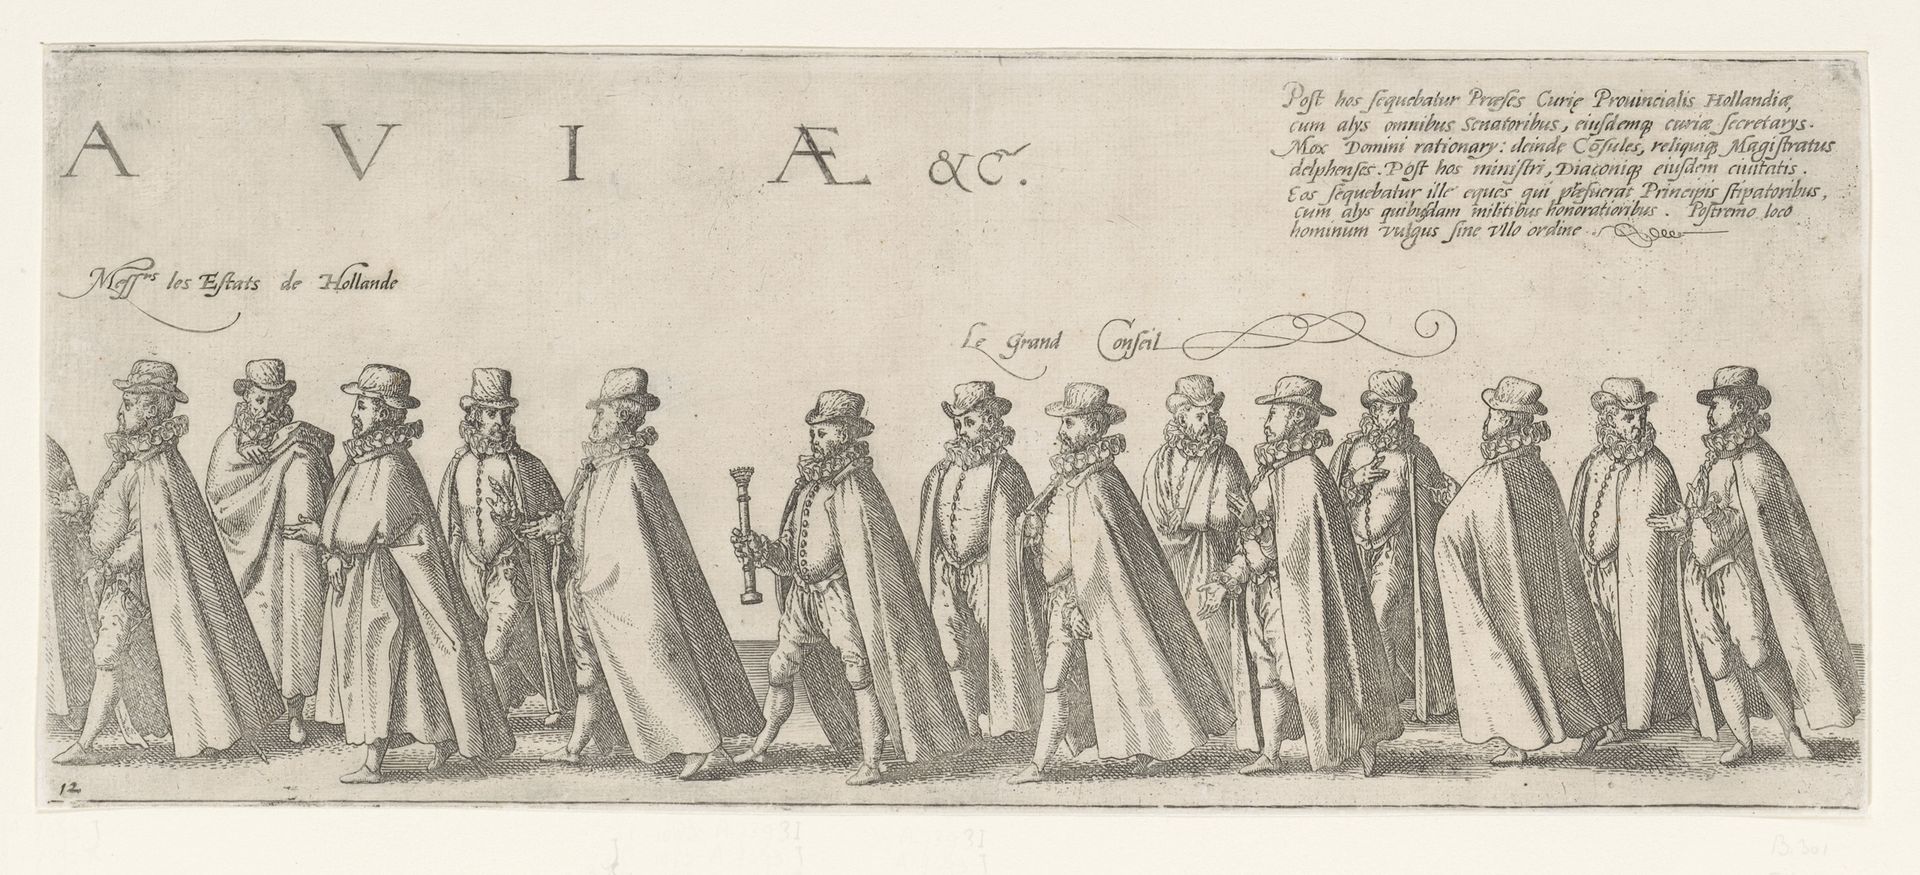 A V I Æ &c.
Post hos sequebatur Præses Curię Prouincialis Hollandiæ,
cum alys omnibus Senatoribus, eiusdemq̨ curiæ secretarys.
Mox Domini rationary: deinde Cõsules, reliquiq̨ Magistratus
delphenses. Post hos ministri, Diaconiq̨ eiusdem ciuitatis.
Eos sequebatur ille eques qui præfuerat Principis stipatoribus,
cum alys quibusdam militibus honoratioribus. Postremo loco
hominum vulgus sine vllo ordine
Messrs les Estats de Hollande
Le Grand Conseil
12